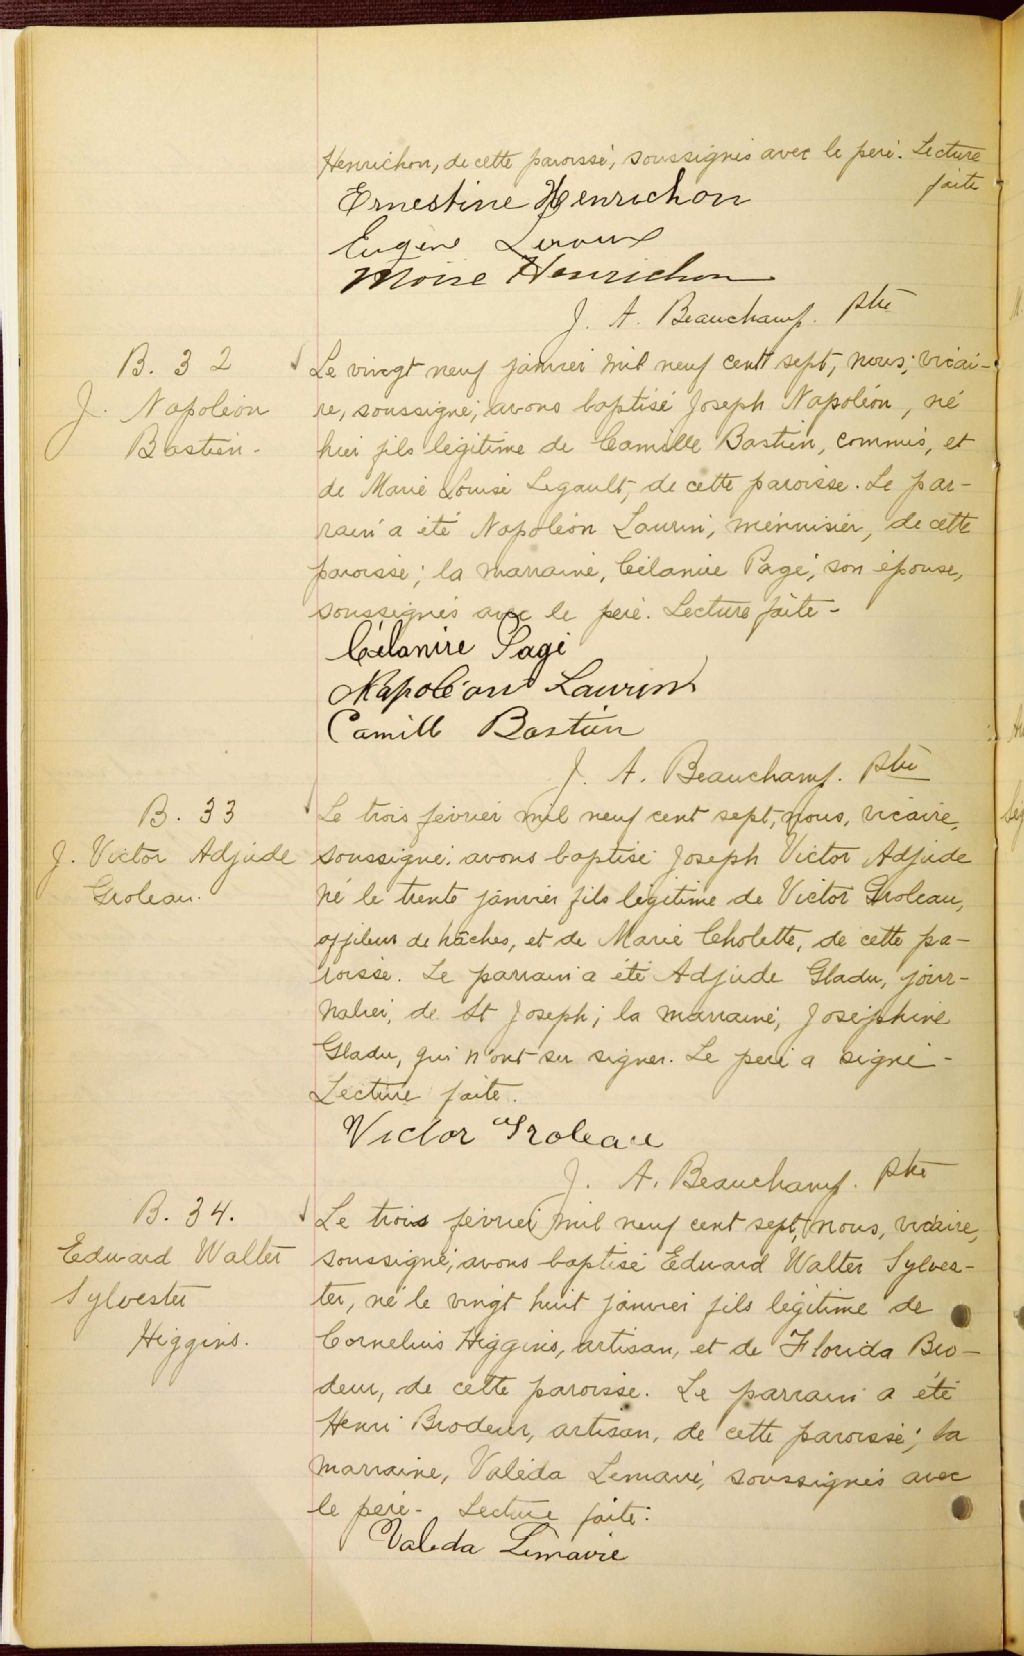 Henrichon, de cette paroisse, soussignés avec le père. Lecture
faite
Ernestine Henrichon
Eugène Leroux
Moise Henrichon
J. A. Beauchamp. ptre
B. 32
J. Napoléon
Bastien.
Le vingt neuf janvier mil neuf cent sept, nous, vicai-
re, soussigné, avons baptisé Joseph Napoléon, né
hier fils légitime de Camille Bastien, commis, et
de Marie Louise Legault, de cette paroisse. Le par-
rain a été Napoléon Laurin, menuisier, de cette
paroisse; la marraine, Célanire Pagé, son épouse,
soussignés avec le père. Lecture faite-
Célanire Pagé
Napoléon Laurin
Camill Bastien
J. A. Beauchamp. ptre
B. 33
J. Victor Adjude
Groleau.
Le trois février mil neuf cent sept, nous, vicaire,
soussigné, avons baptisé Joseph Victor Adjude
né le trente janvier fils légitime de Victor Groleau,
affileur de hâches, et de Marie Cholette, de cette pa-
roisse. Le parrain a été Adjude Gladu, jour-
nalier, de St Joseph; la marraine, Joséphine
Gladu, qui n'ont su signer. Le père a signé-
Lecture faite.
Victor Groleau
J. A. Beauchamp. ptre
B. 34.
Edward Walter
Sylvester
Higgins.
Le trois février mil neuf cent sept, nous, vicaire,
soussigné, avons baptisé Edward Walter Sylves-
ter, né le vingt huit janvier fils légitime de
Cornelius Higgins, artisan, et de Florida Bro-
deur, de cette paroisse. Le parrain a été
Henri Brodeur, artisan, de cette paroisse; la
marraine, Valéda Lemaire, soussignés avec
le père- Lecture faite.
Valeda Lemaire